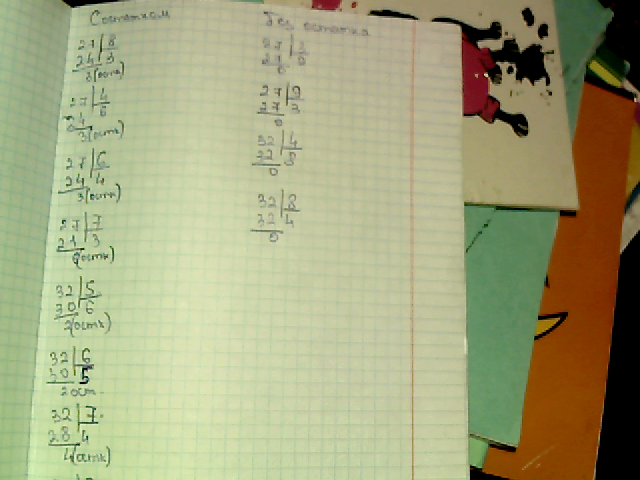 С остатком
27 | 8
24 | 3
3(ост)
27 | 4
24 | 6
3(ост)
27 | 6
24 | 4
3(ост)
27 | 7
21 | 3
6(ост)
32 | 5
30 | 6
2(ост)
32 | 6
30 | 5
2 ост.
32 | 7
28 | 4
4(ост)
Без остатка
27 | 3
27 | 9
0
27 | 9
27 | 3
0
32 | 4
32 | 8
0
32 | 8
32 | 4
0